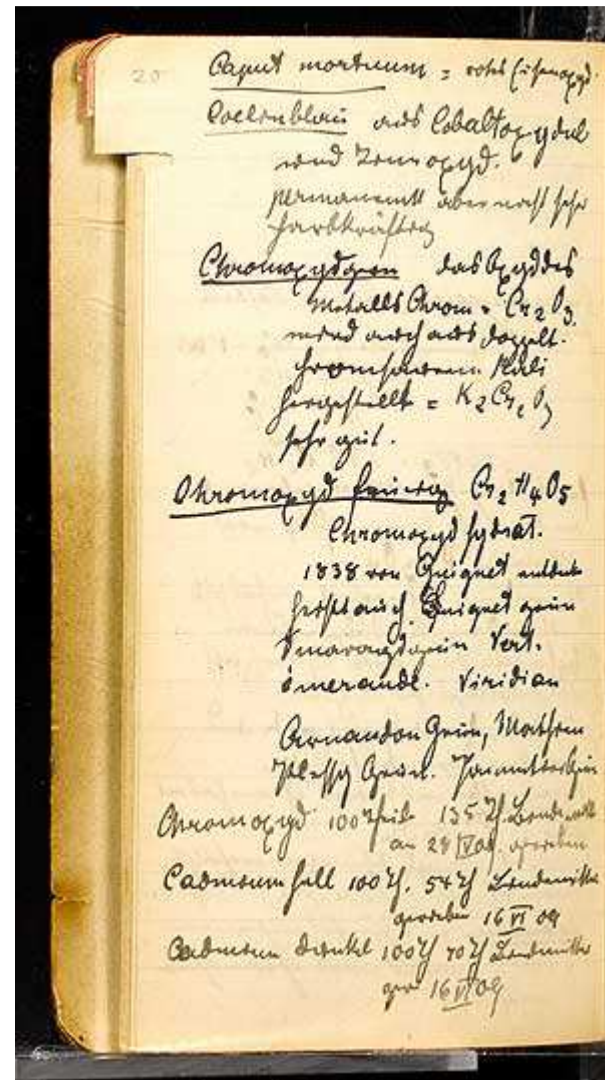 20
Caput mortuum = rotes Eisenoxyd.
Coelinblau aus Cobaltoxydul
und Zinnoxyd.
permanent aber nicht sehr
farbkräftig
Chromoxydgrün das Oxyd des
Metalls Chrom = Cr2O3
wird auch aus doppelt-
chromsaurem Kali
hergestellt = K2Cr2O7
sehr gut.
Chromoxyd feurig Cr2H4O5
Chromoxydhydrat.
1838 von Guignet entdeckt
heisst auch Guignet grün
Smaragdgrün Vert.
émeraude. Viridian
Arnaudon Grün, Mathieu
Plessy Grün.
Chromoxyd 100 Theile 135 Th Bindemittel
am 28 IV 09. gerieben
Cadmium hell 100 Th. 54 Th Bindemittel
gerieben 16 VI 09
Cadmium dunkel 100 Th 70 Th Bindemittel
ger 16 VI 09